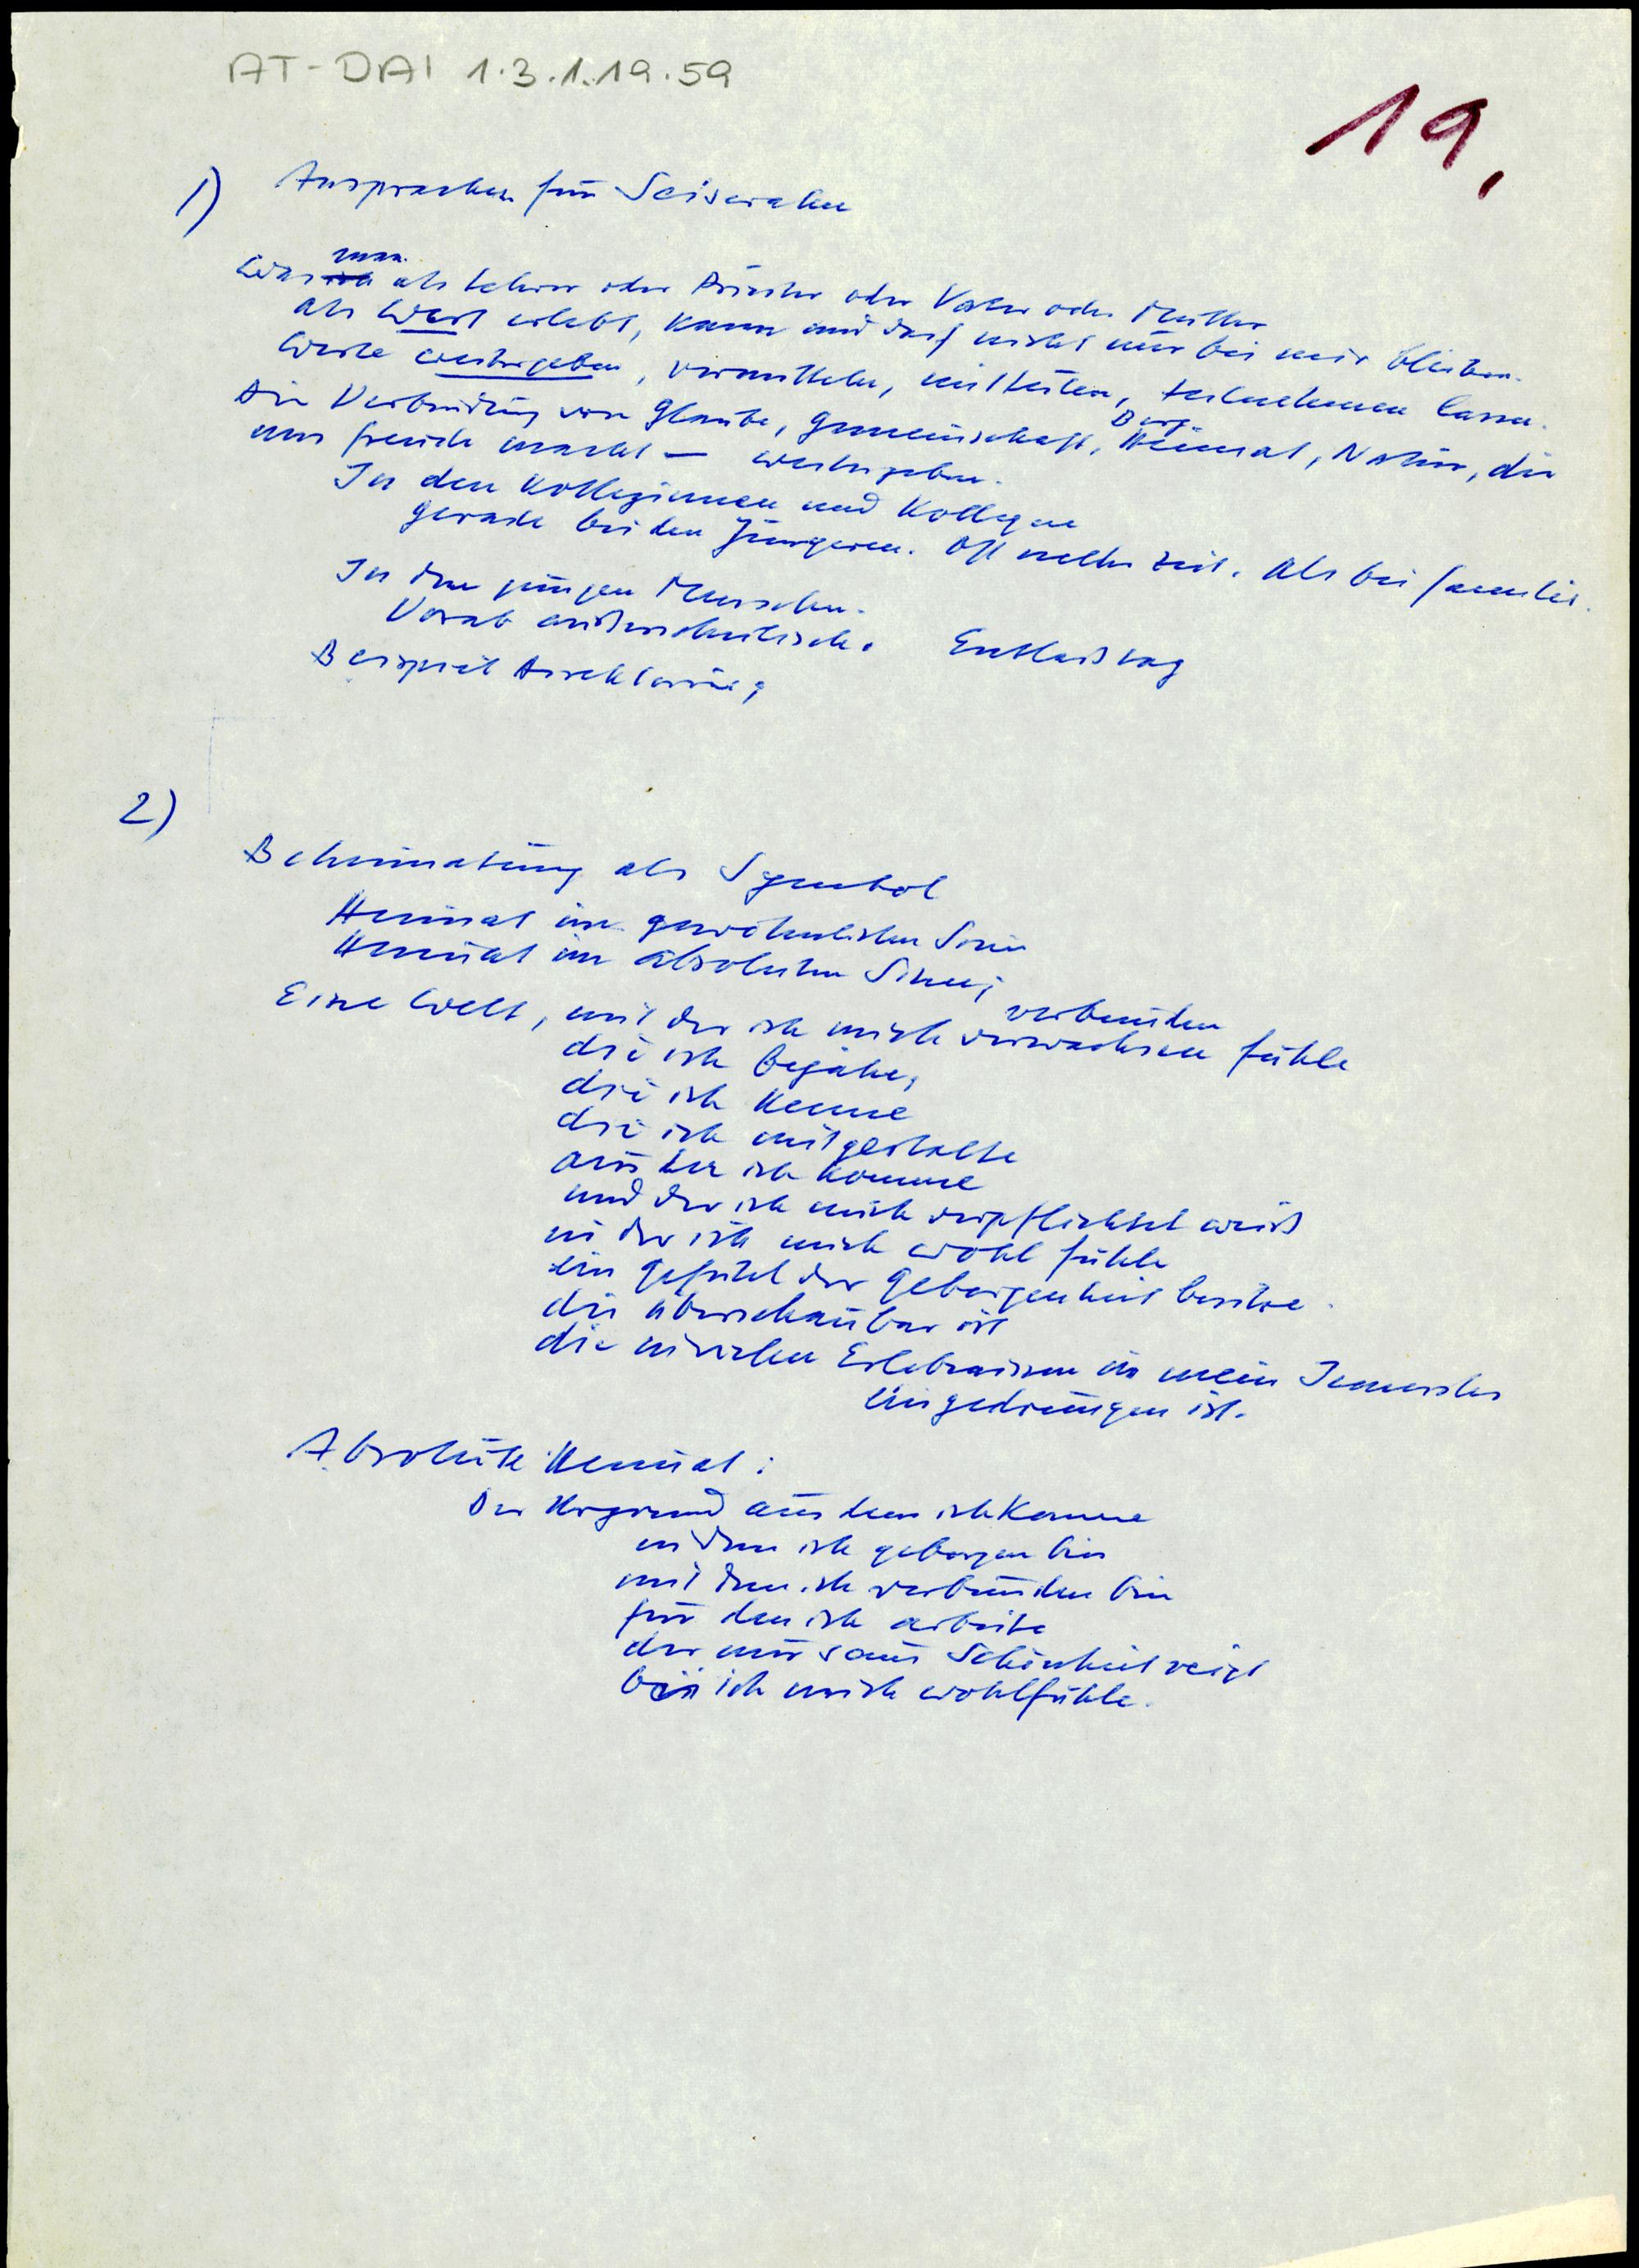 AT-DAI 1.3.1.19.59
19.
1) Ansprachen für Seiseralm
man
Was ich als Lehrer oder Priester oder Vater oder Mutter
als Wert erlebt, kann und darf nicht nur bei mir bleiben.
Werte weitergeben, vermitteln, mitteilen, teilnehmen lassen.
Berg
Die Verbindung von Glaube, Gemeinschaft, Heimat, Natur, die
uns Freude macht — weitergeben.
In den Kolleginnen und Kollegen
gerade bei den Jüngeren. Oft mehr Zeit. Als bei Familie.
In den jungen Menschen.
Vorab außerschulisch.
Beispiel
2)
Beheimatung als Symbol
Heimat im gewöhnlichen Sinn
Heimat im absoluten Sinn;
verbunden
Eine Welt, mit der ich mich verwachsen fühle
die ich bejahe,
die ich kenne
die ich mitgestalte
aus der ich komme
und der ich mich verpflichtet weiß
in der ich mich wohl fühle
ein Gefühl der Geborgenheit besitze.
die überschaubar ist
die in vielen Erlebnissen in mein Innerstes
eingedrungen ist.
Absolute Heimat:
Der Urgrund aus dem ich komme
in dem ich geborgen bin
mit dem ich verbunden bin
für den ich arbeite
der mir seine Schönheit zeigt
ich mich wohlfühle.